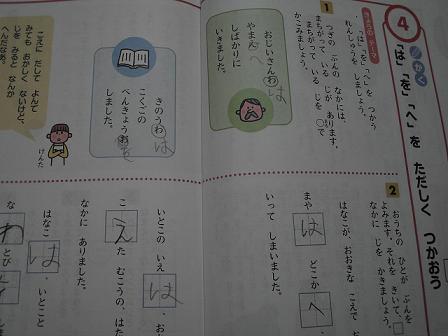 4
かく
「は」「を」「へ」を ただしく つかおう
きょうの テーマ
「は」「を」「へ」を つかう
れんしゅうを しましょう。
1
つぎの ぶんの なかには、
まちがって いる じが あります。
まちがって いる じを ○で
かこみましょう。
おじいさんわ
は
やまえ
へ
しばかりに
いきました。
きのうわ
は
こくごの
べんきょうお
を
しました。
こえに だして よんで
みても おかしく ないけど、
じを みると なんか
へんだなあ。
けんた
2
おうちの ひとが ぶんを
よみます。それを きいて、□の
なかに じを かきましょう。
はなこが、おおきな こえで お
まや は どこか へ
いって しまいました。
いとこの いえ は、お
こ え た むこうの、はた
なかに ありました。
はなこ は、いとこと
な わ とび